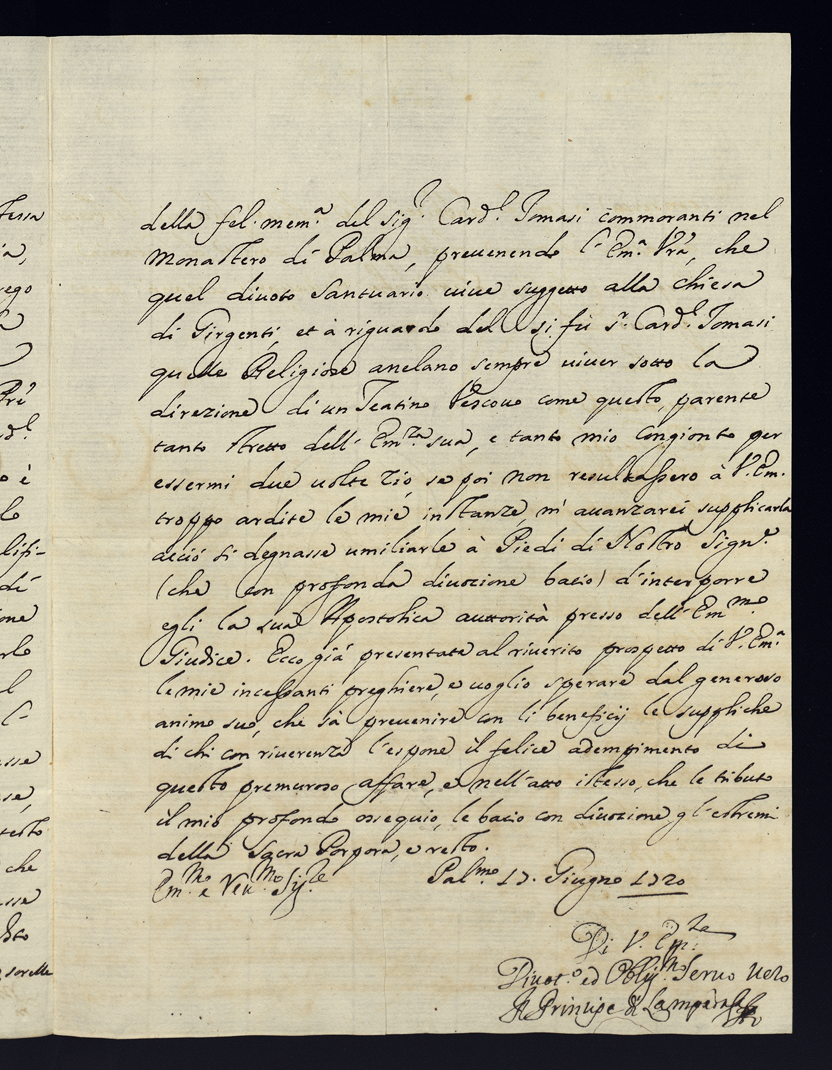 della fel: mem.ª del Sig.r Card.l Tomasi commoranti nel
Monastero di Palma, prevenendo l'Em.ª Vrã, che
quel divoto Santuario vive suggetto alla Chiesa
di Girgenti, et à riguardo del si fù S.r Card.l Tomasi
quelle Religiose anelano sempre viver sotto la
direzione di un Teatino Vescovo come questo, parente
tanto stretto dell'Em.za sua, e tanto mio congionto per
essermi due volte Zio, se poi non resultassero à V. Em.
troppo ardite le mie instanze, m'avanzarei supplicarla
acciò si degnasse umiliarle à Piedi di Nostro Sign.r
(che con profonda divozione bacio) d'interporre
egli la sua Apostolica auttorità presso dell'Em.mo
Giudice. Ecco già presentate al riverito prospetto di V. Em.ª
le mie incessanti preghiere, e voglio sperare dal generoso
animo suo, che sà prevenire con li beneficij le suppliche
di chi con riverenza l'espone il felice adempimento di
questo premuroso affare, e nell'atto istesso, che le tributo
il mio profondo ossequio, le bacio con divozione gl'estremi
della Sacra Porpora, e resto.
Em.mo e Rev.mo Sig.re Pal.mo 17. Giugno 1720
Di V. Em.za
Divot.o ed Oblig.mo Servo Vero
Il Principe di Lampedusa
tessa
ia,
rego
Prẽ
d.l
o è
lo
lifi-
di
ione
rlo
l
l'
asse
se,
testo
che
asse
sorelle